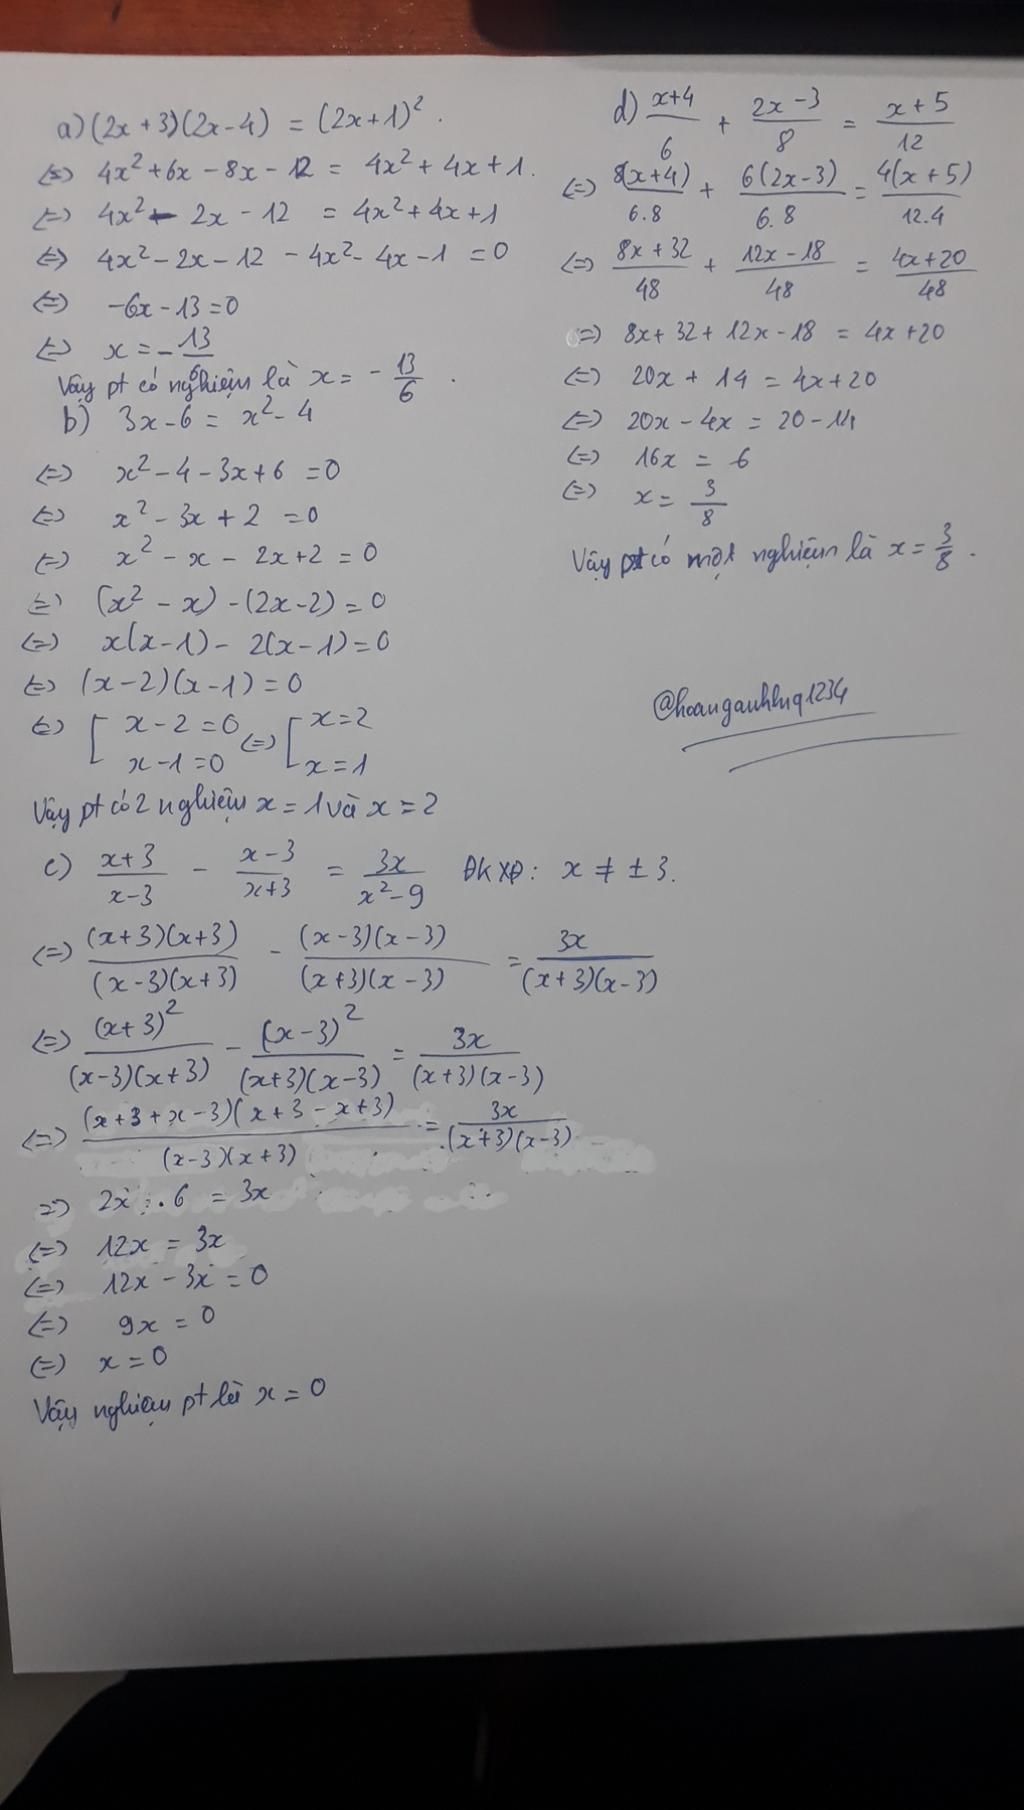 a) (2x+3)(2x-4) = (2x+1)².
(=) 4x²+6x-8x-12 = 4x²+4x+1.
(=) 4x²-2x-12 = 4x²+4x+1
(=) 4x²-2x-12-4x²-4x-1 = 0
(=) -6x-13=0
(=) x = -13/6
Vậy pt có nghiệm là x = -13/6.
b) 3x-6 = x²-4
(=) x²-4-3x+6 = 0
(=) x²-3x+2 = 0
(=) x²-x-2x+2 = 0
(=) (x²-x)-(2x-2) = 0
(=) x(x-1)-2(x-1)=0
(=) (x-2)(x-1)=0
(=) [ x-2=0 (=) [ x=2
x-1=0 x=1
Vậy pt có 2 nghiệm x=1 và x=2
c) (x+3)/(x-3) - (x-3)/(x+3) = 3x/(x²-9) ĐKXĐ: x ≠ ±3.
(=) (x+3)(x+3)/(x-3)(x+3) - (x-3)(x-3)/(x+3)(x-3) = 3x/(x+3)(x-3)
(=) (x+3)²/(x-3)(x+3) - (x-3)²/(x+3)(x-3) = 3x/(x+3)(x-3)
(=) (x+3+x-3)(x+3-x+3)/(x-3)(x+3) = 3x/(x+3)(x-3)
=> 2x . 6 = 3x
(=) 12x = 3x
(=) 12x-3x = 0
(=) 9x = 0
(=) x = 0
Vậy nghiệm pt là x = 0
d) (x+4)/6 + (2x-3)/8 = (x+5)/12
(=) 8(x+4)/6.8 + 6(2x-3)/6.8 = 4(x+5)/12.4
(=) (8x+32)/48 + (12x-18)/48 = (4x+20)/48
=> 8x+32+12x-18 = 4x+20
(=) 20x+14 = 4x+20
(=) 20x-4x = 20-14
(=) 16x = 6
(=) x = 3/8
Vậy pt có một nghiệm là x = 3/8.